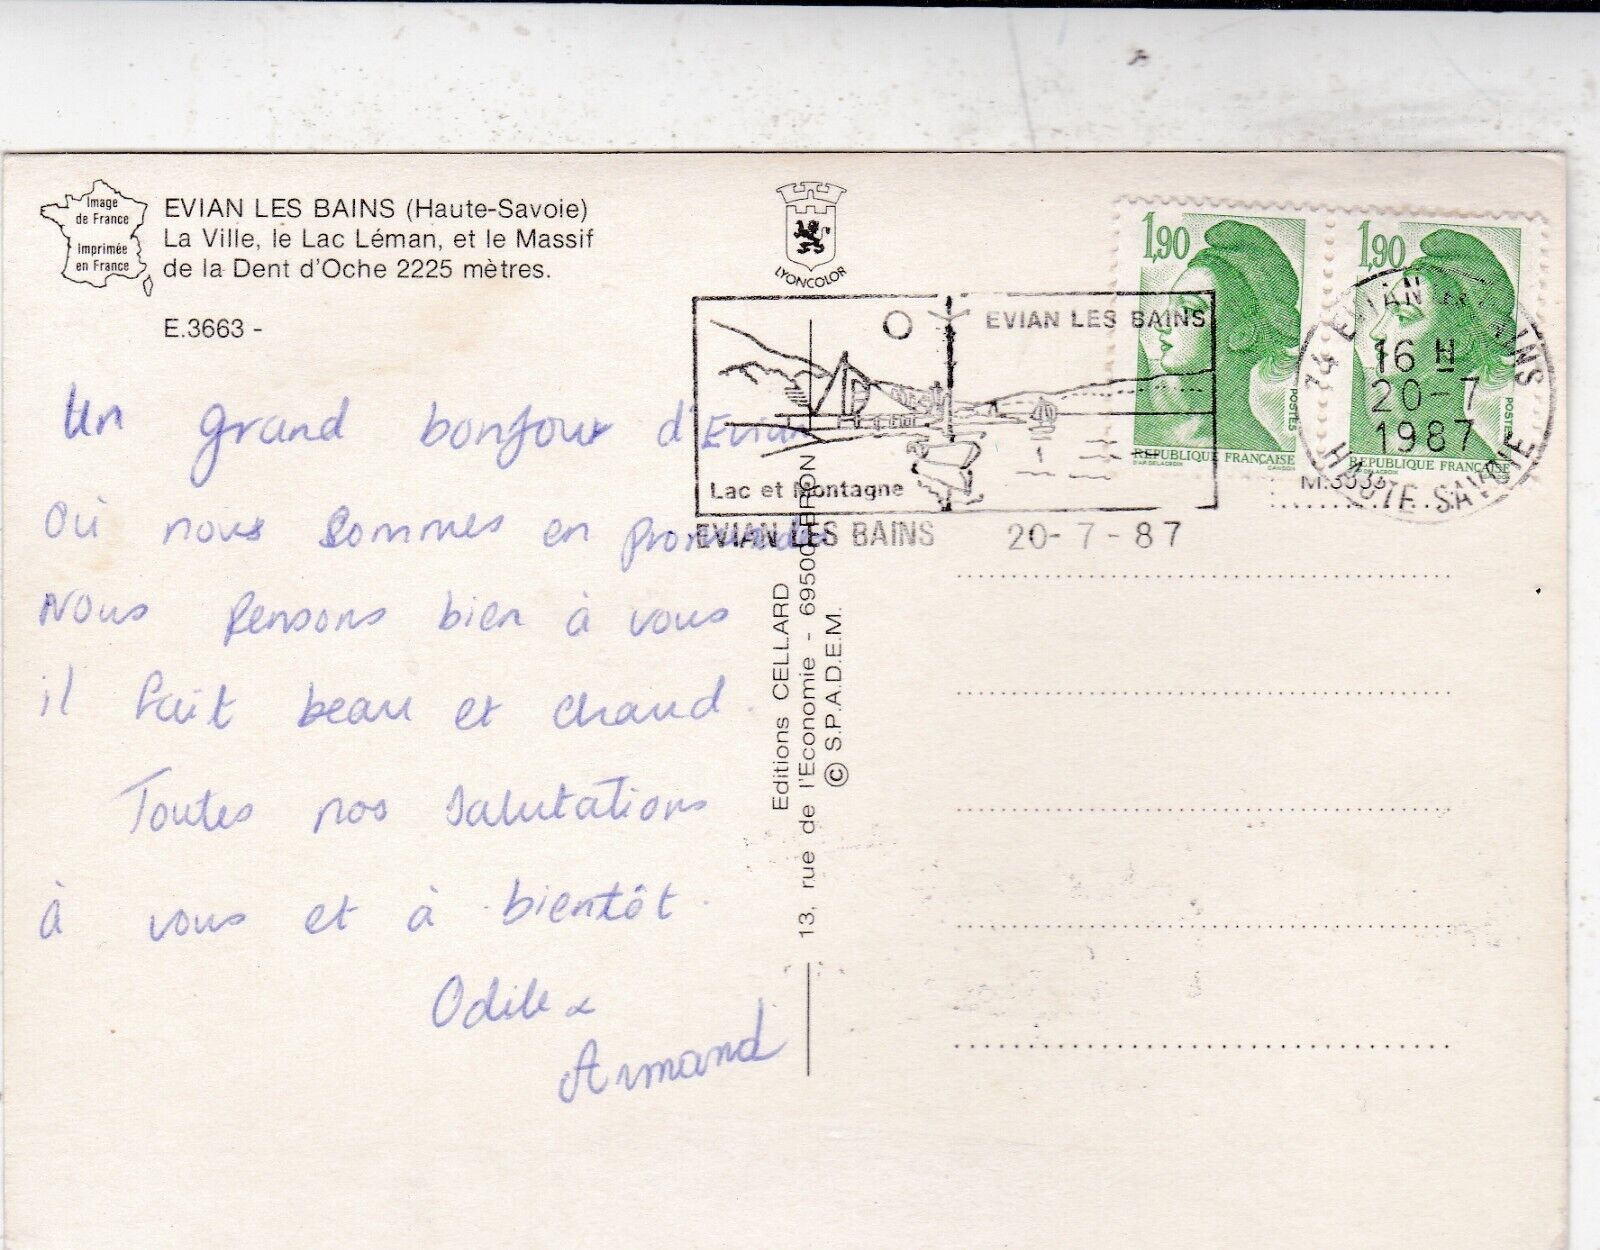 Image
de France
Imprimée
en France
EVIAN LES BAINS (Haute-Savoie)
La Ville, le Lac Léman, et le Massif
de la Dent d'Oche 2225 mètres.
E.3663 -
LYONCOLOR
Un grand bonjour d'Evian
Où nous sommes en promenade
Nous pensons bien à vous
il fait beau et chaud.
Toutes nos salutations
à vous et à bientôt.
Odile &
Armand
Editions CELLARD
13, rue de l'Economie - 69500 BRON
© S.P.A.D.E.M.
EVIAN LES BAINS
Lac et Montagne
EVIAN LES BAINS 20-7-87
1,90
POSTES
REPUBLIQUE FRANÇAISE
D'AP. DELACROIX GANDON
1,90
POSTES
REPUBLIQUE FRANÇAISE
74 EVIAN LES BAINS
16 H
20-7
1987
HAUTE SAVOIE